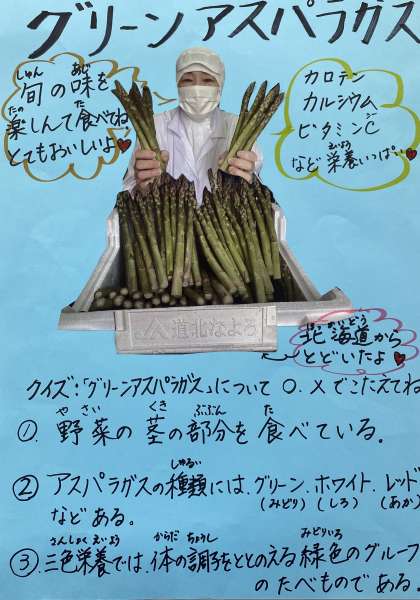 グリーンアスパラガス
しゅん あじ
旬の味を
たの た
楽しんで食べてね
とてもおいしいよ
カロテン
カルシウム
ビタミンC
など栄養いっぱい
道北なよろ
ほっかいどう
北海道から
とどいたよ
クイズ:「グリーンアスパラガス」について○、×でこたえてね
やさい くき ぶぶん た
① 野菜の茎の部分を食べている。
しゅるい
② アスパラガスの種類には、グリーン、ホワイト、レッド
(みどり) (しろ) (あか)
などある。
さんしょくえいよう からだ ちょうし みどりいろ
③ 三色栄養では、体の調子をととのえる緑色のグループ
のたべものである。